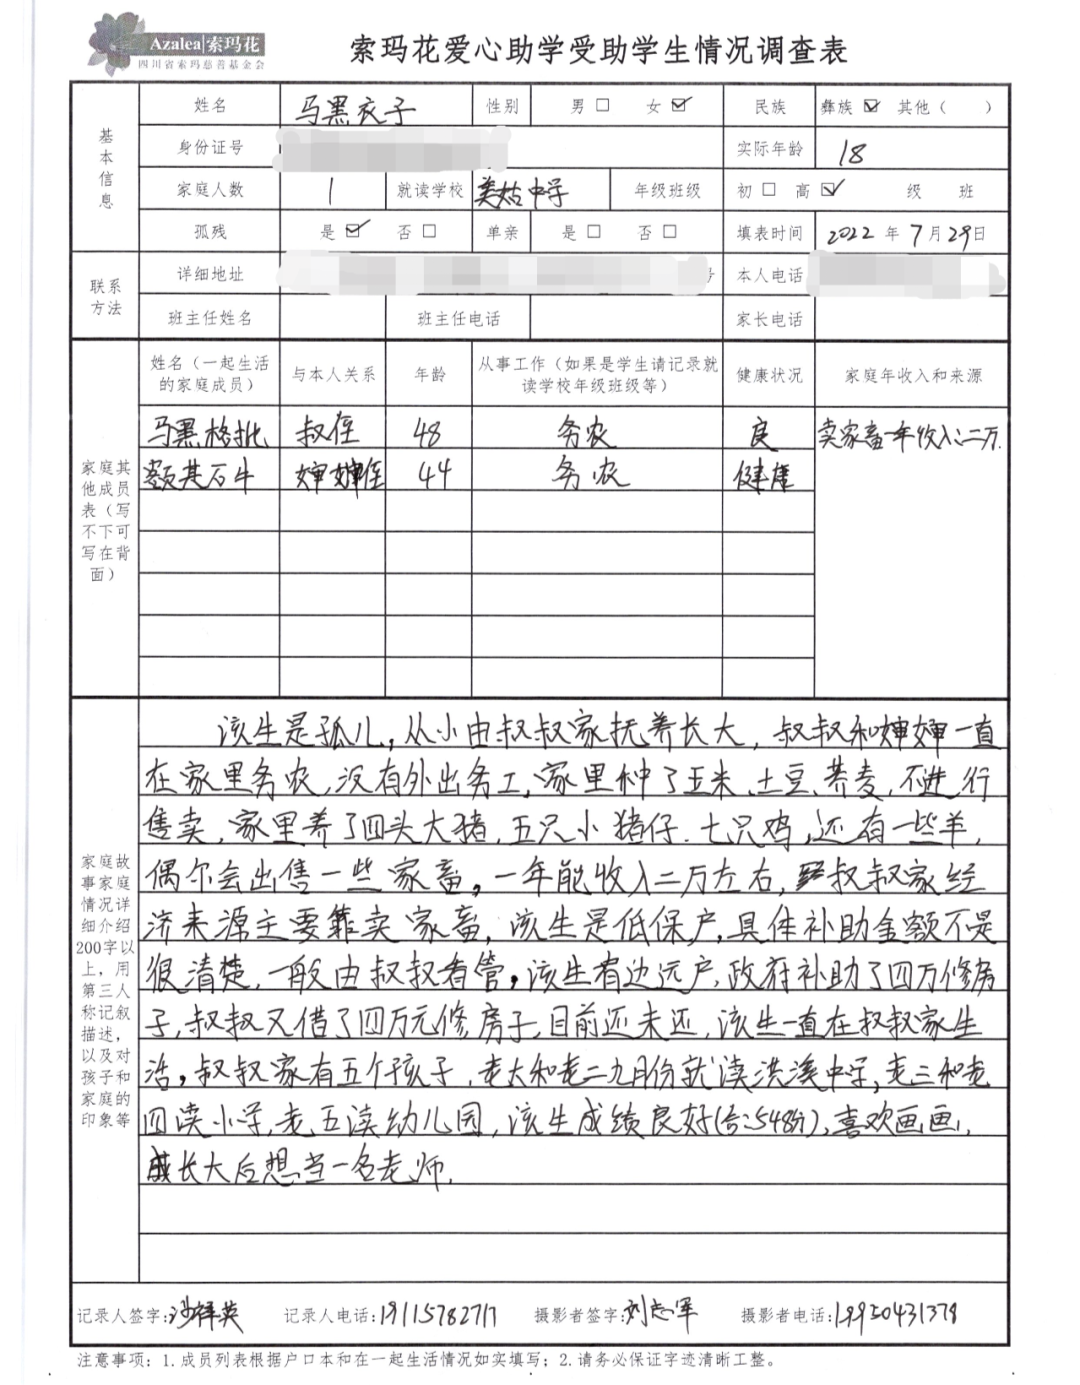 Azalea|索玛花
四川省索玛慈善基金会
索玛花爱心助学受助学生情况调查表
基本信息
姓名 马黑衣子 性别 男 □ 女 ☑ 民族 彝族 ☑ 其他（ ）
身份证号 实际年龄 18
家庭人数 1 就读学校 美姑中学 年级班级 初 □ 高 ☑ 级 班
孤残 是 ☑ 否 □ 单亲 是 □ 否 □ 填表时间 2022 年 7 月 29 日
联系方法
详细地址 号 本人电话
班主任姓名 班主任电话 家长电话
家庭其他成员表（写不下可写在背面）
姓名（一起生活的家庭成员） 与本人关系 年龄 从事工作（如果是学生请记录就读学校年级班级等） 健康状况 家庭年收入和来源
马黑格批 叔侄 48 务农 良 卖家畜一年收入:二万.
额其石牛 婶婶侄 44 务农 健康
家庭故事家庭情况详细介绍200字以上，用第三人称记叙描述，以及对孩子和家庭的印象等
该生是孤儿,从小由叔叔家抚养长大,叔叔和婶婶一直
在家里务农,没有外出务工,家里种了玉米、土豆、荞麦,不进行
售卖,家里养了四头大猪,五只小猪仔.七只鸡,还有一些羊,
偶尔会出售一些家畜。一年能收入二万左右,叔叔家经
济来源主要靠卖家畜,该生是低保户,具体补助金额不是
很清楚,一般由叔叔看管。该生有边远户,政府补助了四万修房
子,叔叔又借了四万元修房子,目前还未还,该生一直在叔叔家生
活。叔叔家有五个孩子,老大和老二九月份就读洪溪中学,老三和老
四读小学,老五读幼儿园,该生成绩良好(合:548分),喜欢画画,
长大后想当一名老师.
记录人签字:沙祥英 记录人电话:19115782717 摄影者签字:刘志军 摄影者电话:19950431378
注意事项：1.成员列表根据户口本和在一起生活情况如实填写；2.请务必保证字迹清晰工整。